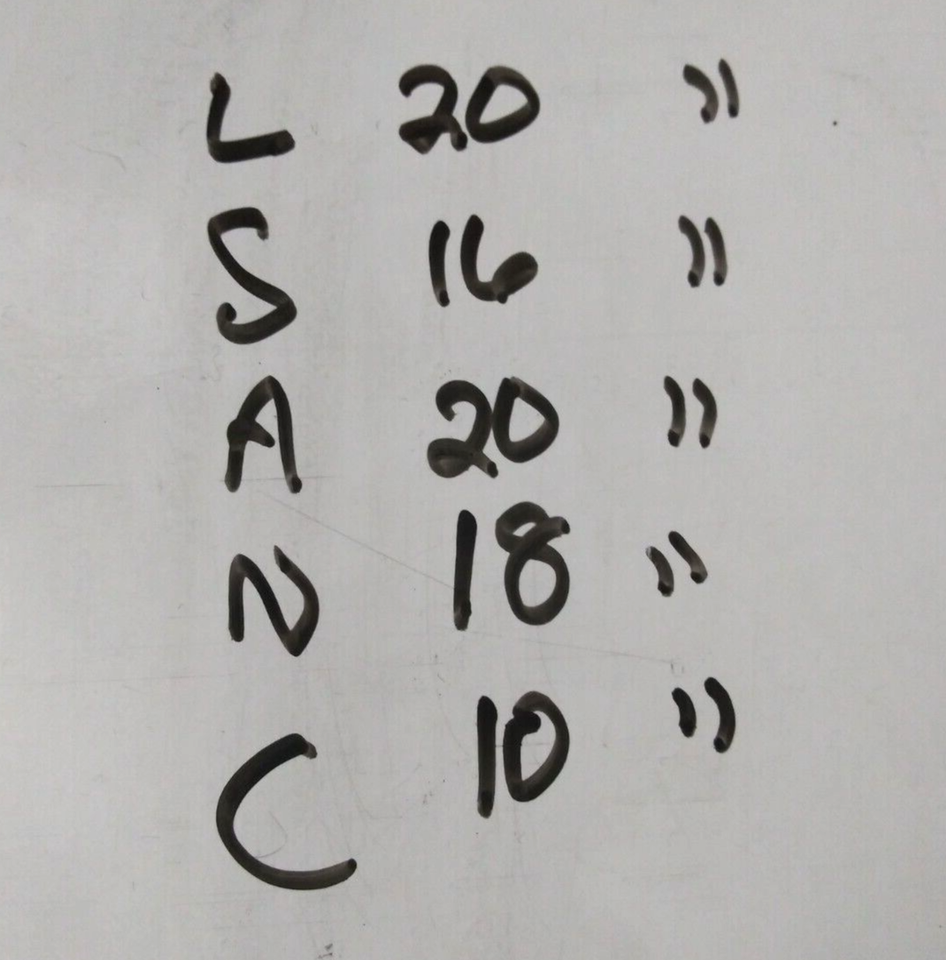 L 20 "
S 16 "
A 20 "
N 18 "
C 10 "